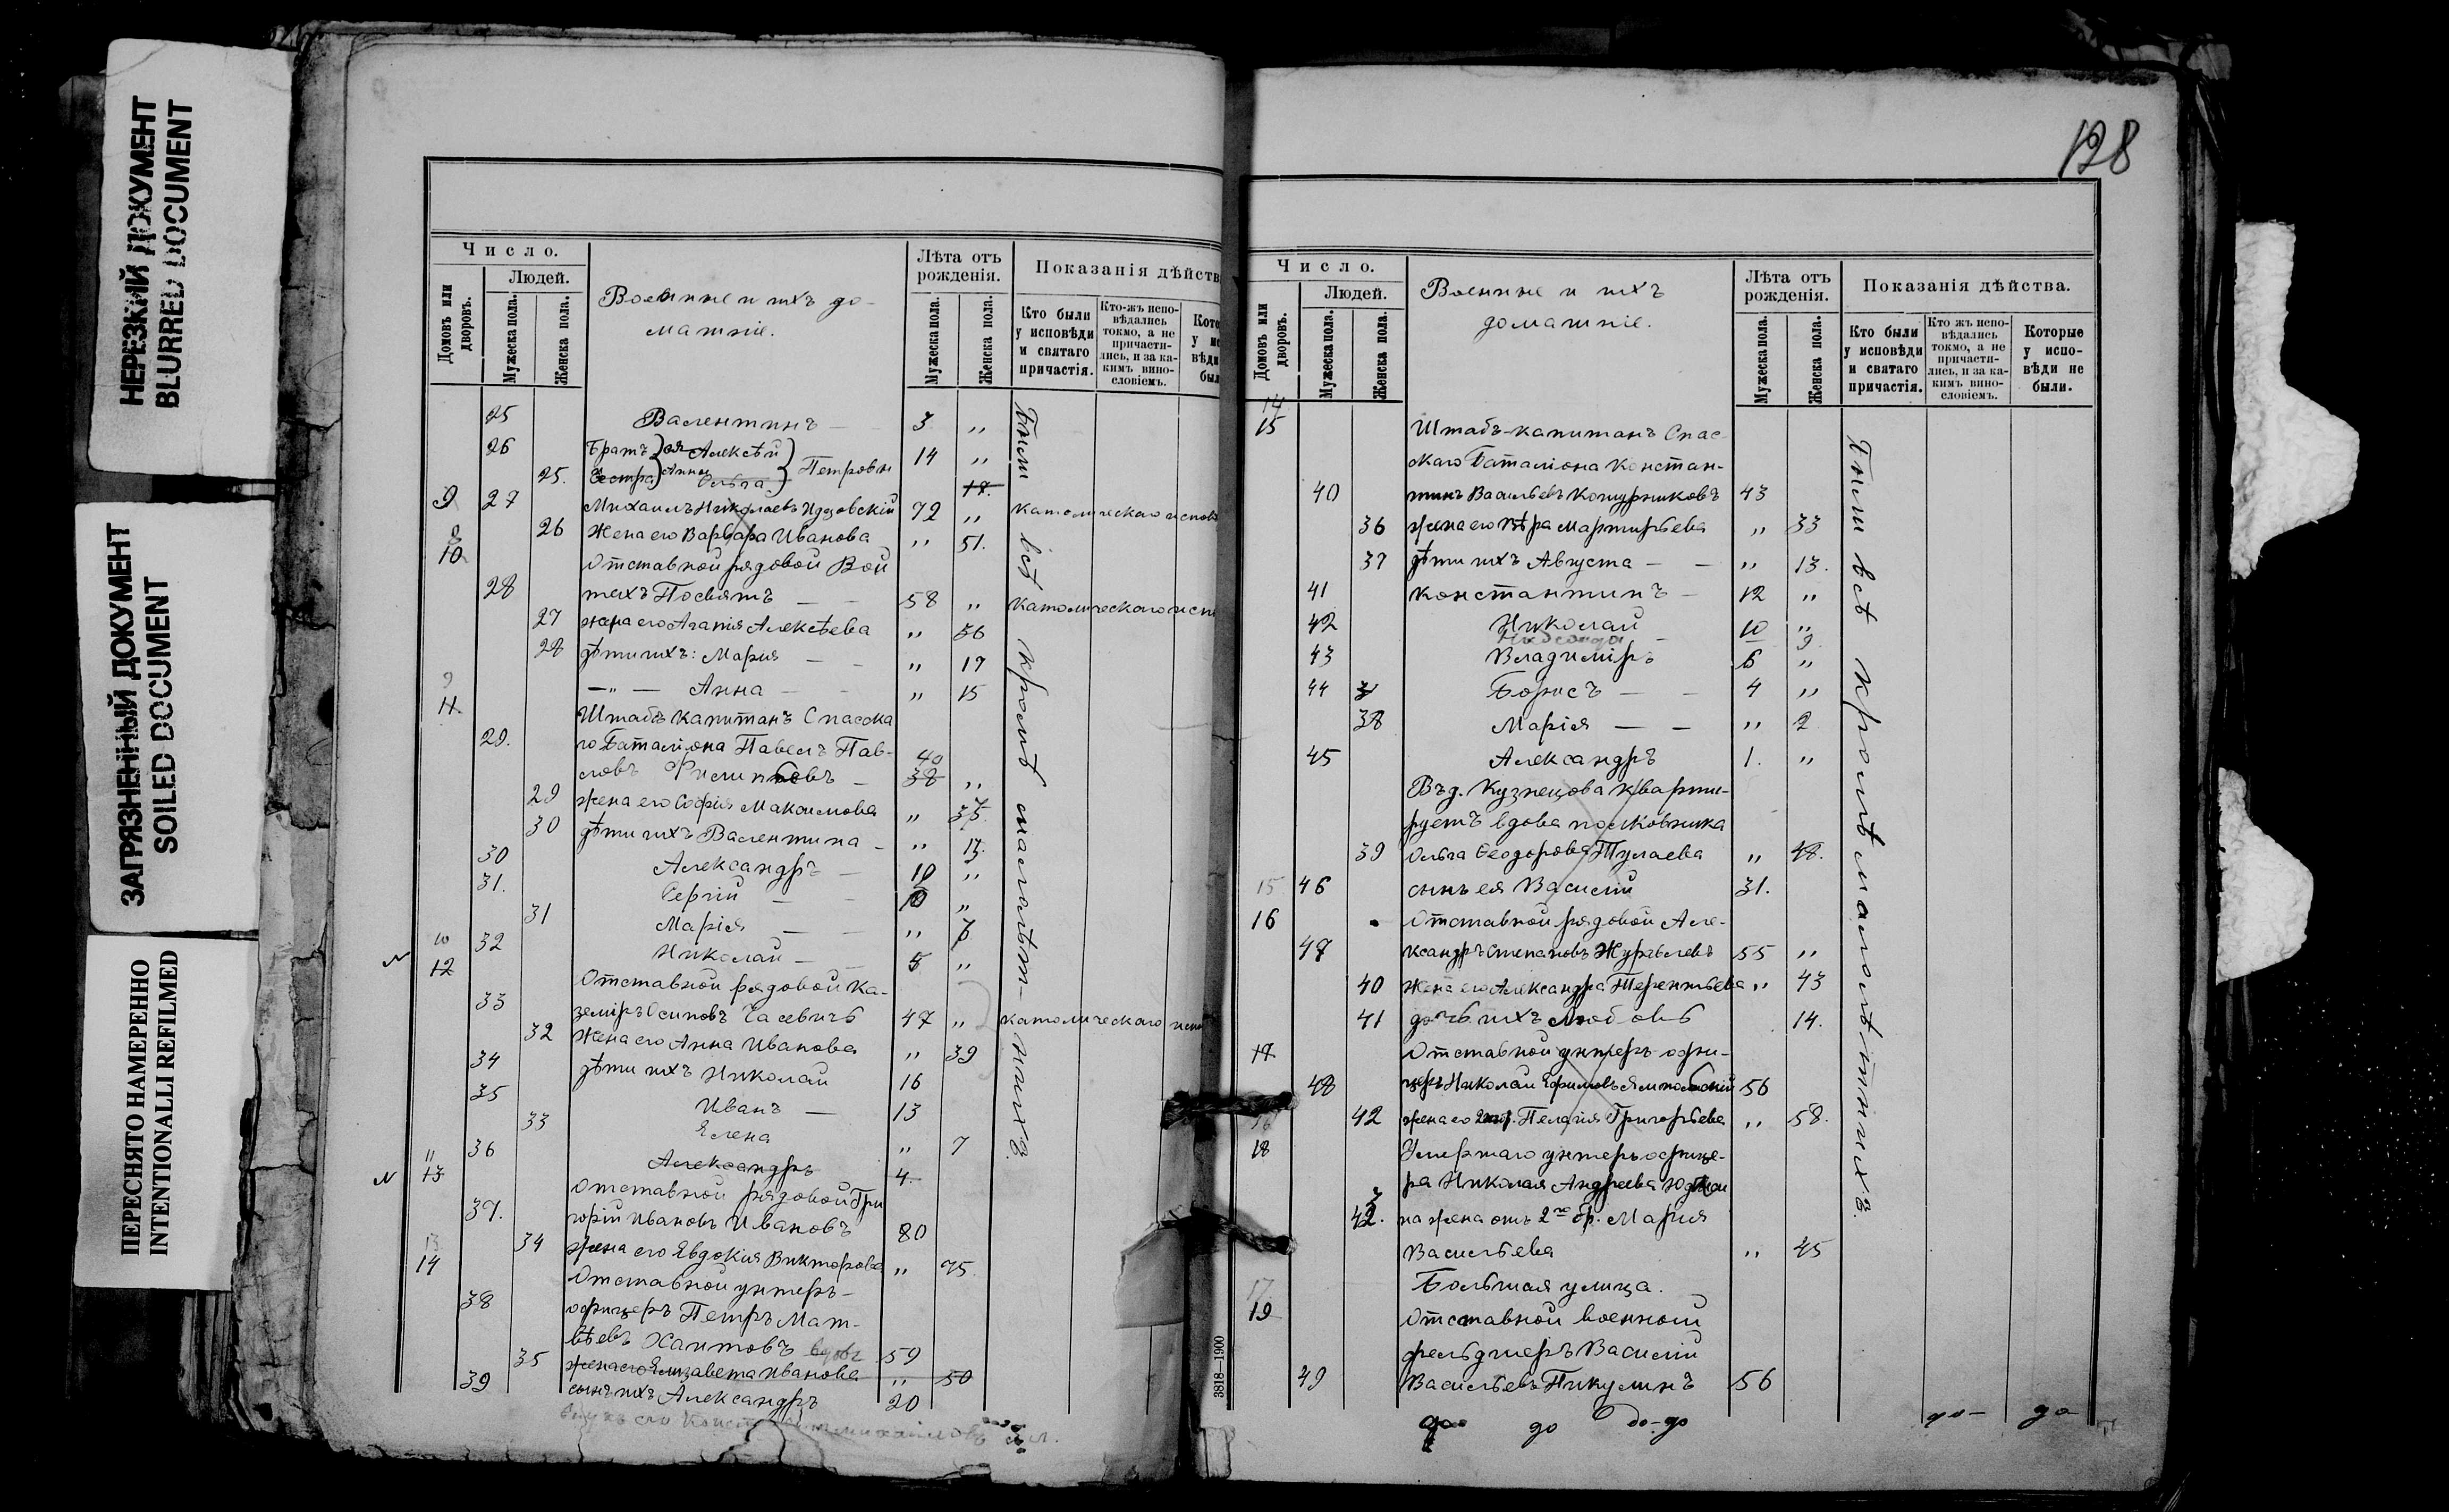 НЕРЕЗКИЙ ДОКУМЕНТ
BLURRED DOCUMENT
ЗАГРЯЗНЕННЫЙ ДОКУМЕНТ
SOILED DOCUMENT
ПЕРЕСНЯТО НАМЕРЕННО
INTENTIONALLI REFILMED
Число.
Людей.
Домовъ или дворовъ.
Мужеска пола.
Женска пола.
Военные и ихъ до-
машніе.
Лѣта отъ рожденія.
Мужеска пола.
Женска пола.
Показанія дѣйств
Кто были у исповѣди и святаго причастія.
Кто-жъ испо-вѣдались токмо, а не причасти-лись, и за ка-кимъ вино-словіемъ.
25 Валентинъ — 3 „
26 Братъ ея Алексѣй 14 „
25. Сестра Анна Ольга Петровы 18.
9 27 Михаилъ Николаевъ 72 „ католическаго испов
26 Жена его Варвара Иванова „ 51.
10 Отставной рядовой Вой
28 техъ — 58 „ католическаго исп
27 жена его Агапія Алексѣева „ 56
28 дѣти ихъ: Марія — „ 17
—„— Анна — „ 15
11. Штабъ капитанъ Спасска
29. го Баталіона Павелъ Пав-
ловъ — 40 38 „
29 жена его Софія Максимова „ 37.
30 дѣти ихъ Валентина — „ 13.
30 Александръ — „
31. Сергій — 10 „
31 Марія — „ 7
10 32 Николай — 5 „
12 Отставной рядовой Ка-
33 земіръ Осиповъ 47 „ католическаго испо
32 Жена его Анна Иванова „ 39
34 дѣти ихъ Николай 16
35 Иванъ — 13
33 Елена „ 7
11 36 Александръ 4
13 Отставной рядовой Гри
37. горій Ивановъ Ивановъ 80
34 жена его Евдокія Викторова „ 75.
14 Отставной унтеръ-
38 офицеръ Петръ Мат-
вѣевъ Хаитовъ вдовъ 59
35 жена его Елизавета Иванова „ 50
39 сынъ ихъ Александръ 20
Были всѣ кромѣ малолѣт-нихъ.
128
Число.
Людей.
Домовъ или дворовъ.
Мужеска пола.
Женска пола.
Военные и ихъ
домашніе.
Лѣта отъ рожденія.
Мужеска пола.
Женска пола.
Показанія дѣйства.
Кто были у исповѣди и святаго причастія.
Кто жъ испо-вѣдались токмо, а не причасти-лись, и за ка-кимъ вино-словіемъ.
Которые у испо-вѣди не были.
14
15 Штабъ-капитанъ Спас-
скаго Баталіона Констан-
40 тинъ Васильевъ Кожурниковъ 43
36 жена его Вѣра Мартирьева „ 33
37 дѣти ихъ Августа — — „ 13.
41 Константинъ — 12 „
42 Николай 10 „
9
43 Владиміръ 6 „
44 Борисъ — — 4 „
38 Марія — — „ 2
45 Александръ 1. „
Въ д. Кузнецова кварти-
руетъ вдова полковника
39 Ольга Ѳеодорова Тулаева „ 48.
15 46 сынъ ея Василій 31.
16 Отставной рядовой Але-
47 ксандръ Степановъ Журавлевъ 55 „
40 жена его Александра Терентьева „ 43
41 дочь ихъ Любовь 14.
17 Отставной унтеръ-офи-
48 церъ Николай Ефимовъ 56
42 жена его Пелагія Григорьева „ 58.
16
18 Умершаго унтеръ-офице-
ра Николая Андреева
42. на жена отъ 2го бр. Марія
Васильева „ 45
Большая улица.
17
19 Отставной военной
фельдшеръ Василій
49 Васильевъ Пикулинъ 56
Были всѣ кромѣ малолѣтнихъ.
до до до-до до- до
3818—1900